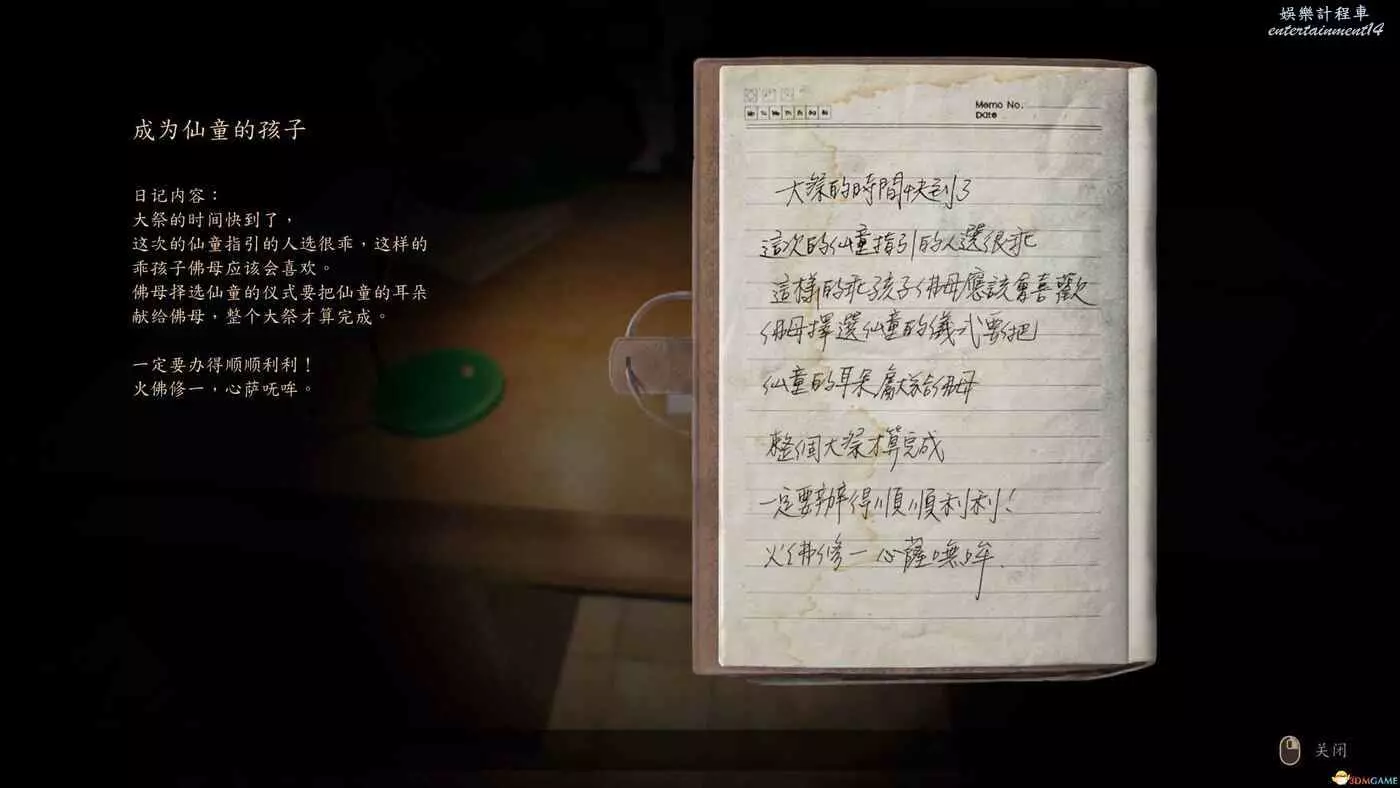 娛樂計程車
entertainment14
成为仙童的孩子
日记内容：
大祭的时间快到了，
这次的仙童指引的人选很乖，这样的
乖孩子佛母应该会喜欢。
佛母择选仙童的仪式要把仙童的耳朵
献给佛母，整个大祭才算完成。
一定要办得顺顺利利！
火佛修一，心萨呒哞。
Memo No.
Date
大祭的時間快到了
這次的仙童指引的人選很乖
這樣的乖孩子佛母應該會喜歡
佛母擇選仙童的儀式要把
仙童的耳朵獻給佛母
整個大祭才算完成
一定要辦得順順利利！
火佛修一心薩嘸哞.
关闭
3DMGAME